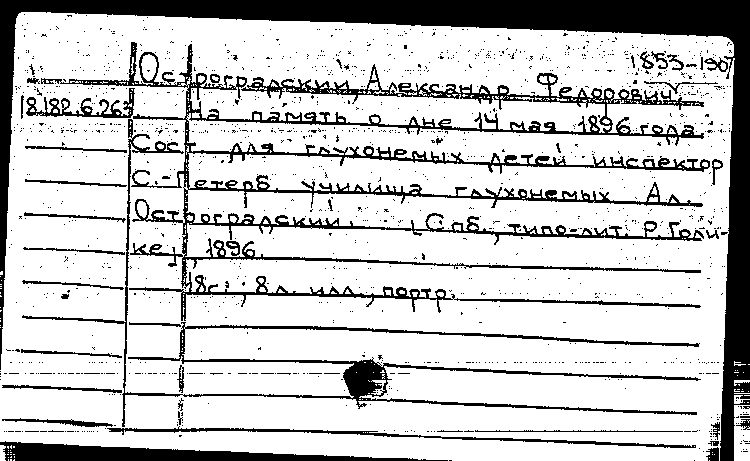 1853-1907
Остроградский, Александр Федорович,
18.182.6.263. На память о дне 14 мая 1896 года.
Сост. для глухонемых детей инспектор
С.-Петерб. училища глухонемых Ал.
Остроградский. [Спб., типо-лит. Р. Голи-
ке], 1896.
18с.; 8 л. илл., портр.